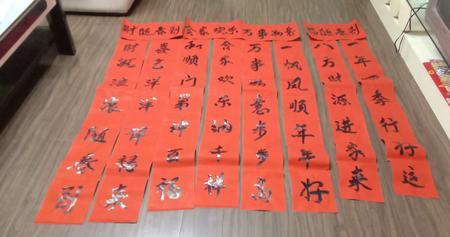 财随春到
合家欢乐
万事如意
随春到
财气滚滚随春到
喜气洋洋伴福来
和顺门第增百福
合家欢乐纳千祥
万事如意步步高
一帆风顺年年好
八方财源进家来
一年四季行好运